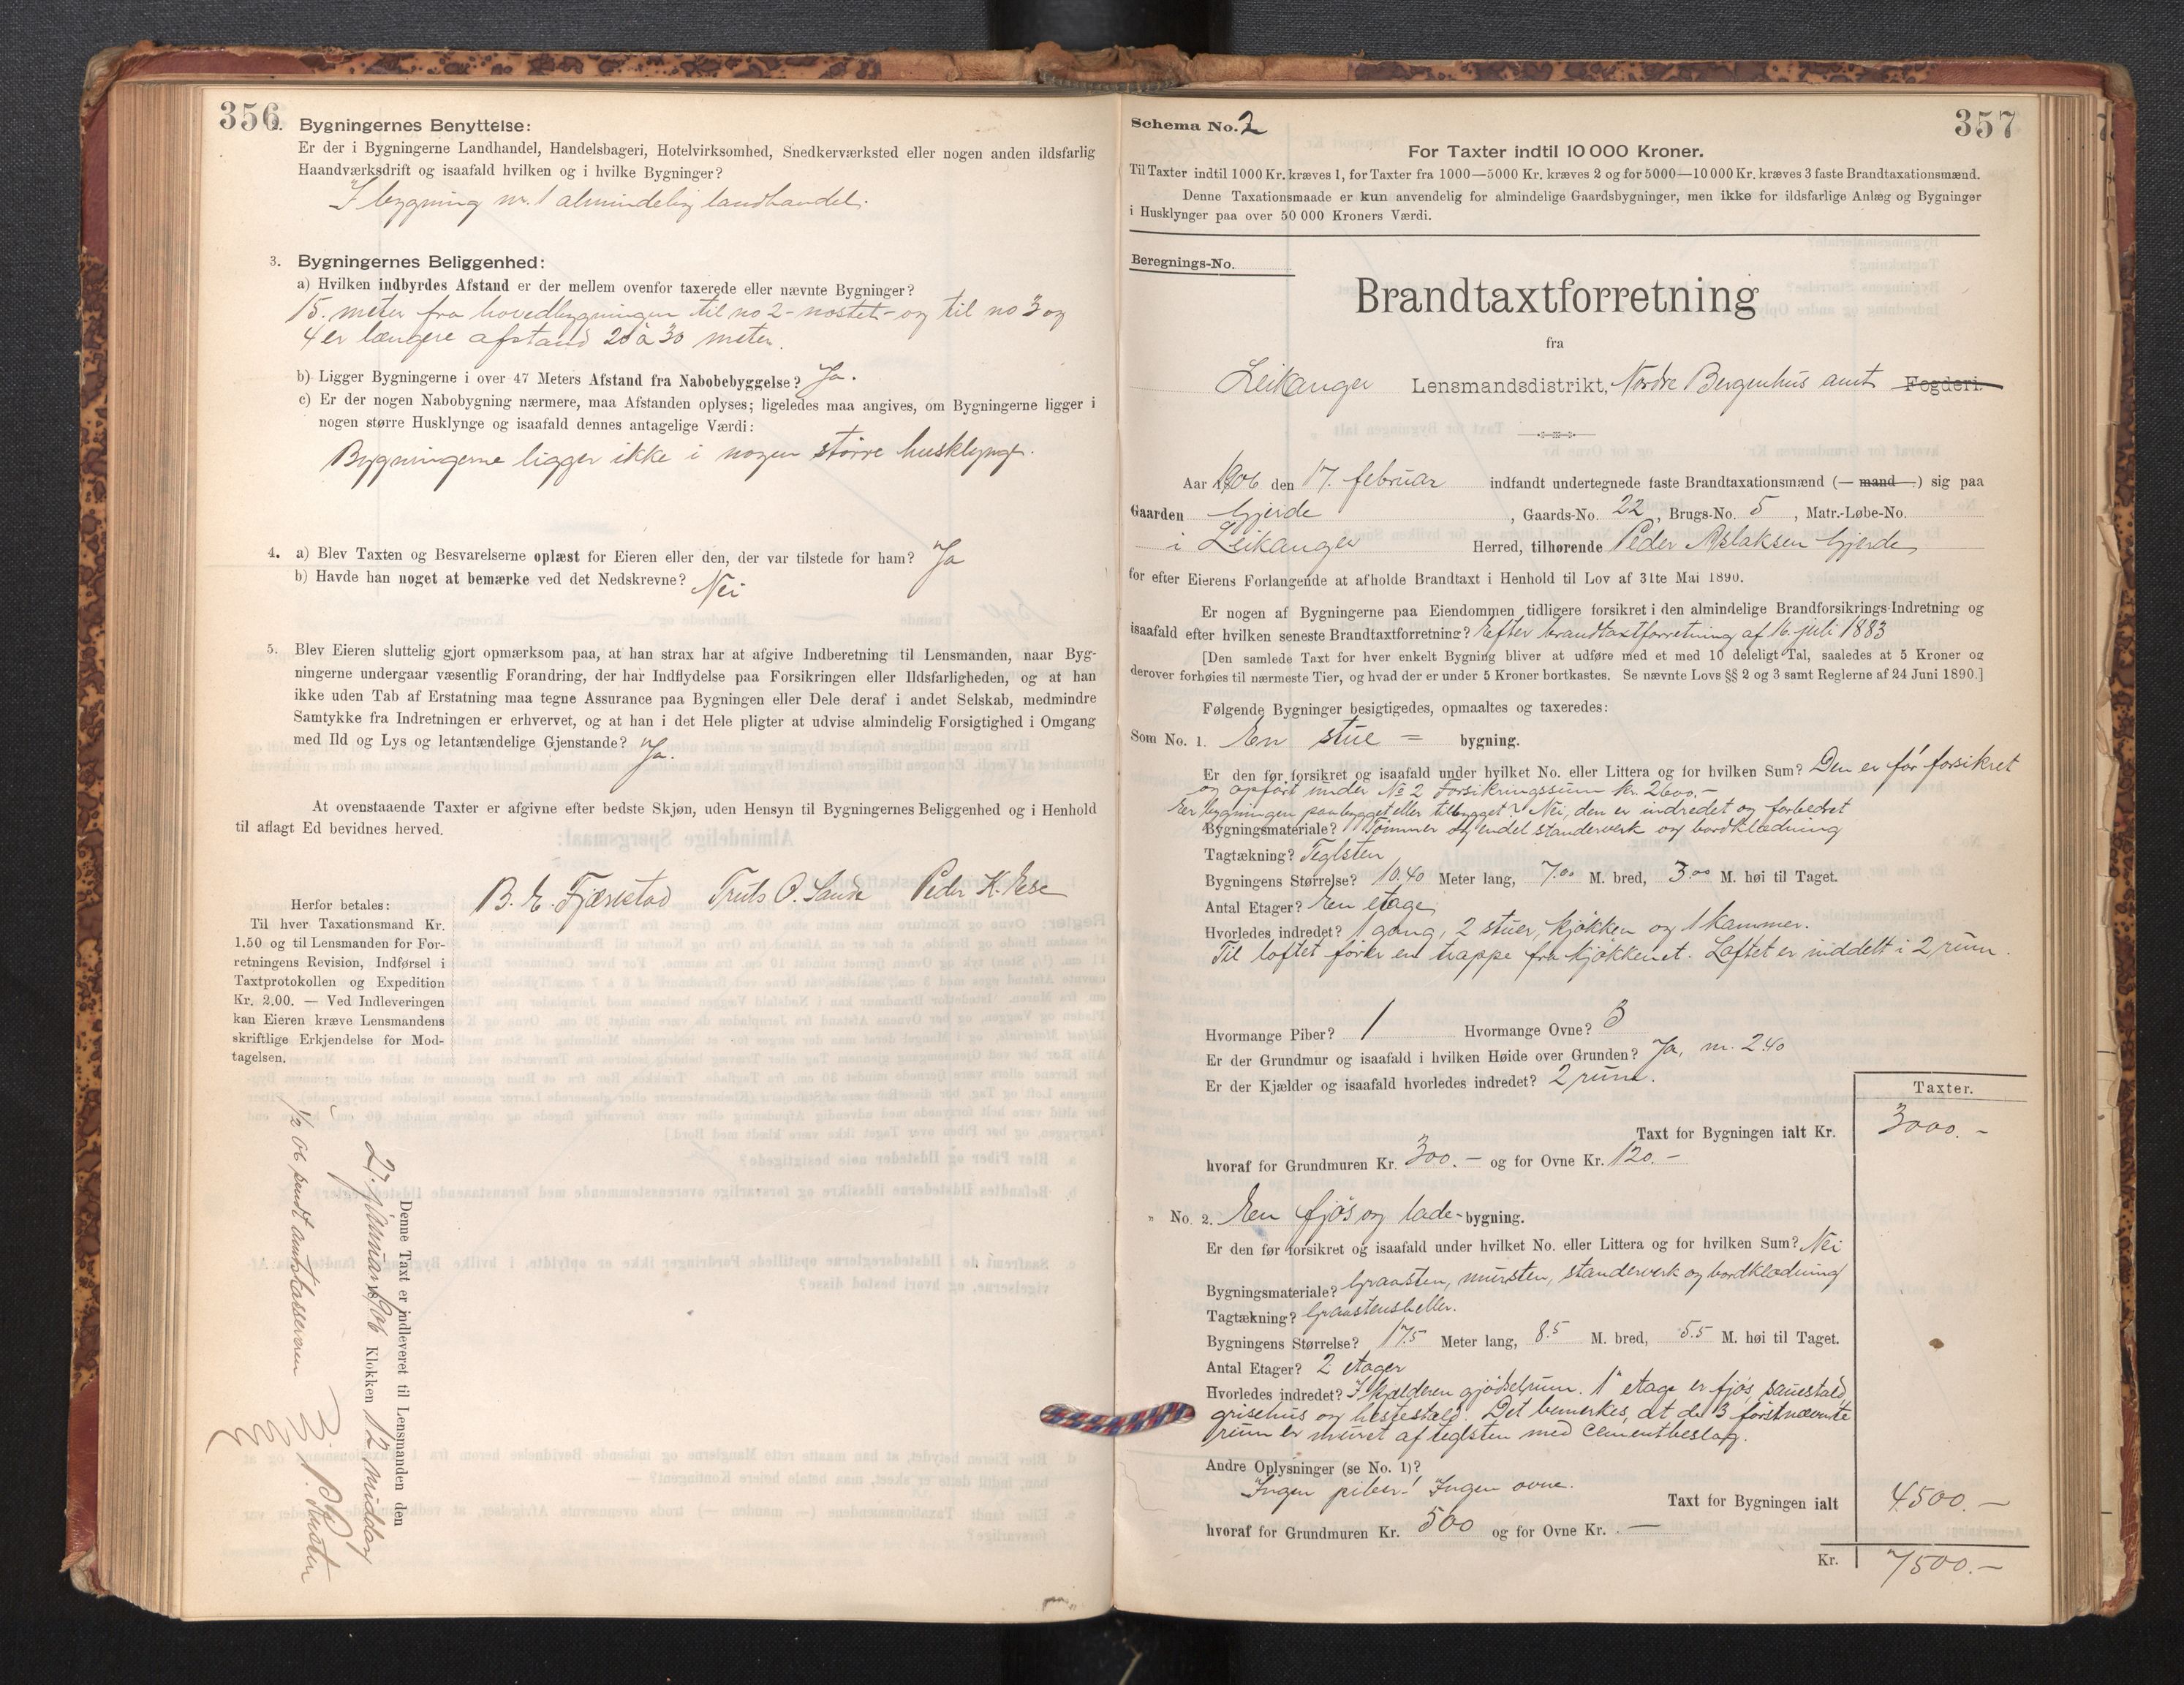 356
2. Bygningernes Benyttelse:
Er der i Bygningerne Landhandel, Handelsbageri, Hotelvirksomhed, Snedkerværksted eller nogen anden ildsfarlig
Haandværksdrift og isaafald hvilken og i hvilke Bygninger?
I bygning nr. 1 almindelig landhandel.
3. Bygningernes Beliggenhed:
a) Hvilken indbyrdes Afstand er der mellem ovenfor taxerede eller nævnte Bygninger?
15. meter fra hovedbygningen til no 2 - nostet - og til no 3 og
4 er længere afstand 20 à 30 meter.
b) Ligger Bygningerne i over 47 Meters Afstand fra Nabobebyggelse? Ja.
c) Er der nogen Nabobygning nærmere, maa Afstanden oplyses; ligeledes maa angives, om Bygningerne ligger i
nogen større Husklynge og isaafald dennes antagelige Værdi:
Bygningerne ligger ikke i nogen större husklynge.
4. a) Blev Taxten og Besvarelserne oplæst for Eieren eller den, der var tilstede for ham? Ja
b) Havde han noget at bemærke ved det Nedskrevne? Nei
5. Blev Eieren sluttelig gjort opmærksom paa, at han strax har at afgive Indberetning til Lensmanden, naar Byg-
ningerne undergaar væsentlig Forandring, der har Indflydelse paa Forsikringen eller Ildsfarligheden, og at han
ikke uden Tab af Erstatning maa tegne Assurance paa Bygningen eller Dele deraf i andet Selskab, medmindre
Samtykke fra Indretningen er erhvervet, og at han i det Hele pligter at udvise almindelig Forsigtighed i Omgang
med Ild og Lys og letantændelige Gjenstande? Ja.
At ovenstaaende Taxter er afgivne efter bedste Skjøn, uden Hensyn til Bygningernes Beliggenhed og i Henhold
til aflagt Ed bevidnes herved.
B. E. Fjærestad Truls O. Sande Peder K. Eese
Herfor betales:
Til hver Taxationsmand Kr.
1.50 og til Lensmanden for For-
retningens Revision, Indførsel i
Taxtprotokollen og Expedition
Kr. 2.00. — Ved Indleveringen
kan Eieren kræve Lensmandens
skriftlige Erkjendelse for Mod-
tagelsen.
Denne Taxt er indleveret til Lensmanden den
27. januar 1906 Klokken 12 middag
1/2 06 sendt amtskasseren
357
Schema No. 2
For Taxter indtil 10 000 Kroner.
Til Taxter indtil 1000 Kr. kræves 1, for Taxter fra 1000—5000 Kr. kræves 2 og for 5000—10 000 Kr. kræves 3 faste Brandtaxationsmænd.
Denne Taxationsmaade er kun anvendelig for almindelige Gaardsbygninger, men ikke for ildsfarlige Anlæg og Bygninger
i Husklynger paa over 50 000 Kroners Værdi.
Beregnings-No.
Brandtaxtforretning
fra
Leikanger Lensmandsdistrikt, Nordre Bergenhus amt Fogderi.
Aar 1906 den 17. februar indfandt undertegnede faste Brandtaxationsmænd (— mand —) sig paa
Gaarden Gjerde, Gaards-No. 22, Brugs-No. 5, Matr.-Løbe-No.
i Leikanger Herred, tilhørende Peder Aslaksen Gjerde
for efter Eierens Forlangende at afholde Brandtaxt i Henhold til Lov af 31te Mai 1890.
Er nogen af Bygningerne paa Eiendommen tidligere forsikret i den almindelige Brandforsikrings-Indretning og
isaafald efter hvilken seneste Brandtaxtforretning? Efter brandtaxtforretning af 16. juli 1883
[Den samlede Taxt for hver enkelt Bygning bliver at udføre med et med 10 deleligt Tal, saaledes at 5 Kroner og
derover forhøies til nærmeste Tier, og hvad der er under 5 Kroner bortkastes. Se nævnte Lovs §§ 2 og 3 samt Reglerne af 24 Juni 1890.]
Følgende Bygninger besigtigedes, opmaaltes og taxeredes:
Som No. 1. En stue = bygning.
Er den før forsikret og isaafald under hvilket No. eller Littera og for hvilken Sum? Den er för forsikret
og opfört under No 2 Forsikringssum kr. 2600.-
Er bygningen paabygget eller tilbygget? Nei, den er indredet og forbedret
Bygningsmateriale? Tømmer og endel standerverk og bordklædning
Tagtækning? Teglsten
Bygningens Størrelse? 10.40 Meter lang, 7.00 M. bred, 3.00 M. høi til Taget.
Antal Etager? En etage
Hvorledes indredet? 1 gang, 2 stuer, kjøkken og 1 kammer.
Til loftet fører en trappe fra kjøkkenet. Loftet er inddelt i 2 rum.
Hvormange Piber? 1 Hvormange Ovne? 3
Er der Grundmur og isaafald i hvilken Høide over Grunden? Ja, m. 2.40
Er der Kjælder og isaafald hvorledes indredet? 2 rum.
Taxter.
Taxt for Bygningen ialt Kr. 3000.-
hvoraf for Grundmuren Kr. 300.- og for Ovne Kr. 120.-
" No. 2. En fjös og lade-bygning.
Er den før forsikret og isaafald under hvilket No. eller Littera og for hvilken Sum? Nei
Bygningsmateriale? Graasten, mursten, standerverk og bordklædning
Tagtækning? Graastensheller.
Bygningens Størrelse? 17.5 Meter lang, 8.5 M. bred, 5.5 M. høi til Taget.
Antal Etager? 2 etager
Hvorledes indredet? I kjælderen gjödselrum. 1ste etage er fjös, sauestald,
grisehus og hestestald. Det bemerkes, at de 3 förstnævnte
rum er muret af teglsten med Cementbeslag.
Andre Oplysninger (se No. 1)?
Ingen piber! Ingen ovne.
Taxt for Bygningen ialt 4500.-
hvoraf for Grundmuren Kr. 500 og for Ovne Kr. —
Kr. 7500.-